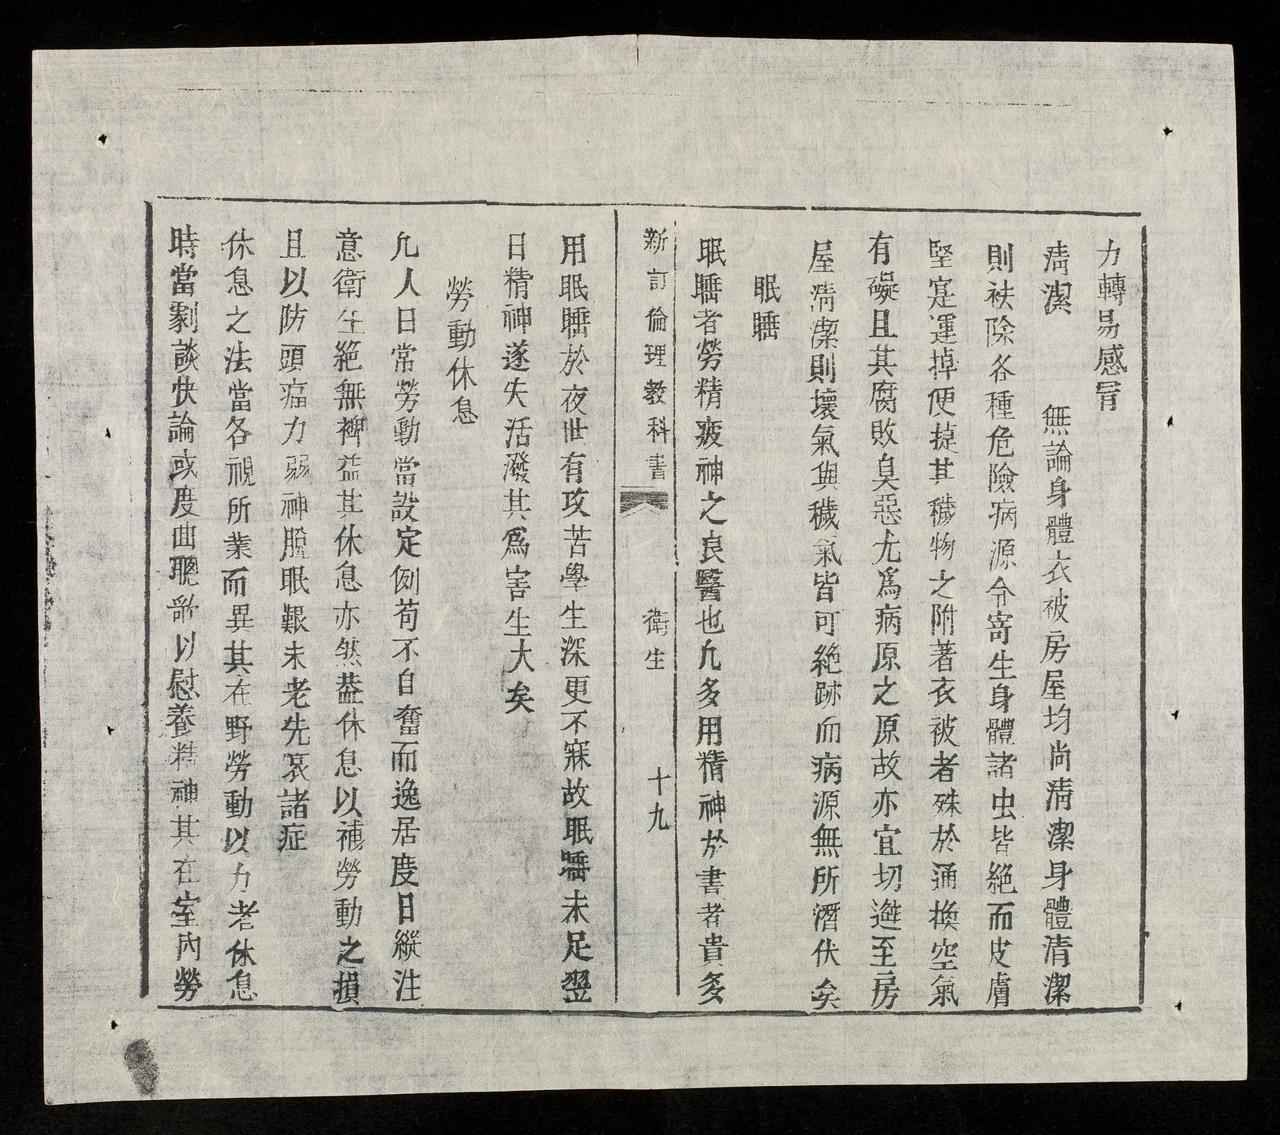 力轉易感冒
淸潔　無論身體衣被房屋均尚淸潔身體淸潔
則祛除各種危險病源令寄生身體諸虫皆絶而皮膚
堅寔運掉便捷其穢物之附著衣被者殊於通換空氣
有礙且其腐敗臭惡尤爲病原之原故亦宜切避至房
屋淸潔則壞氣與穢氣皆可絶跡而病源無所潛伏矣
眠睡
眠睡者勞精疲神之良醫也凢多用精神於書者貴多
新訂倫理教科書　衛生　十九
用眠睡於夜世有攻苦學生深更不寐故眠睡未足翌
日精神遂失活潑其爲害生大矣
勞動休息
凢人日常勞動當設定例苟不自奮而逸居度日縱注
意衛生絶無裨益其休息亦然葢休息以補勞動之損
且以防頭痛力弱神脫眠艱未老先衰諸症
休息之法當各視所業而異其在野勞動以力者休息
時當劇談快論或度曲聽歌以慰養精神其在室內勞